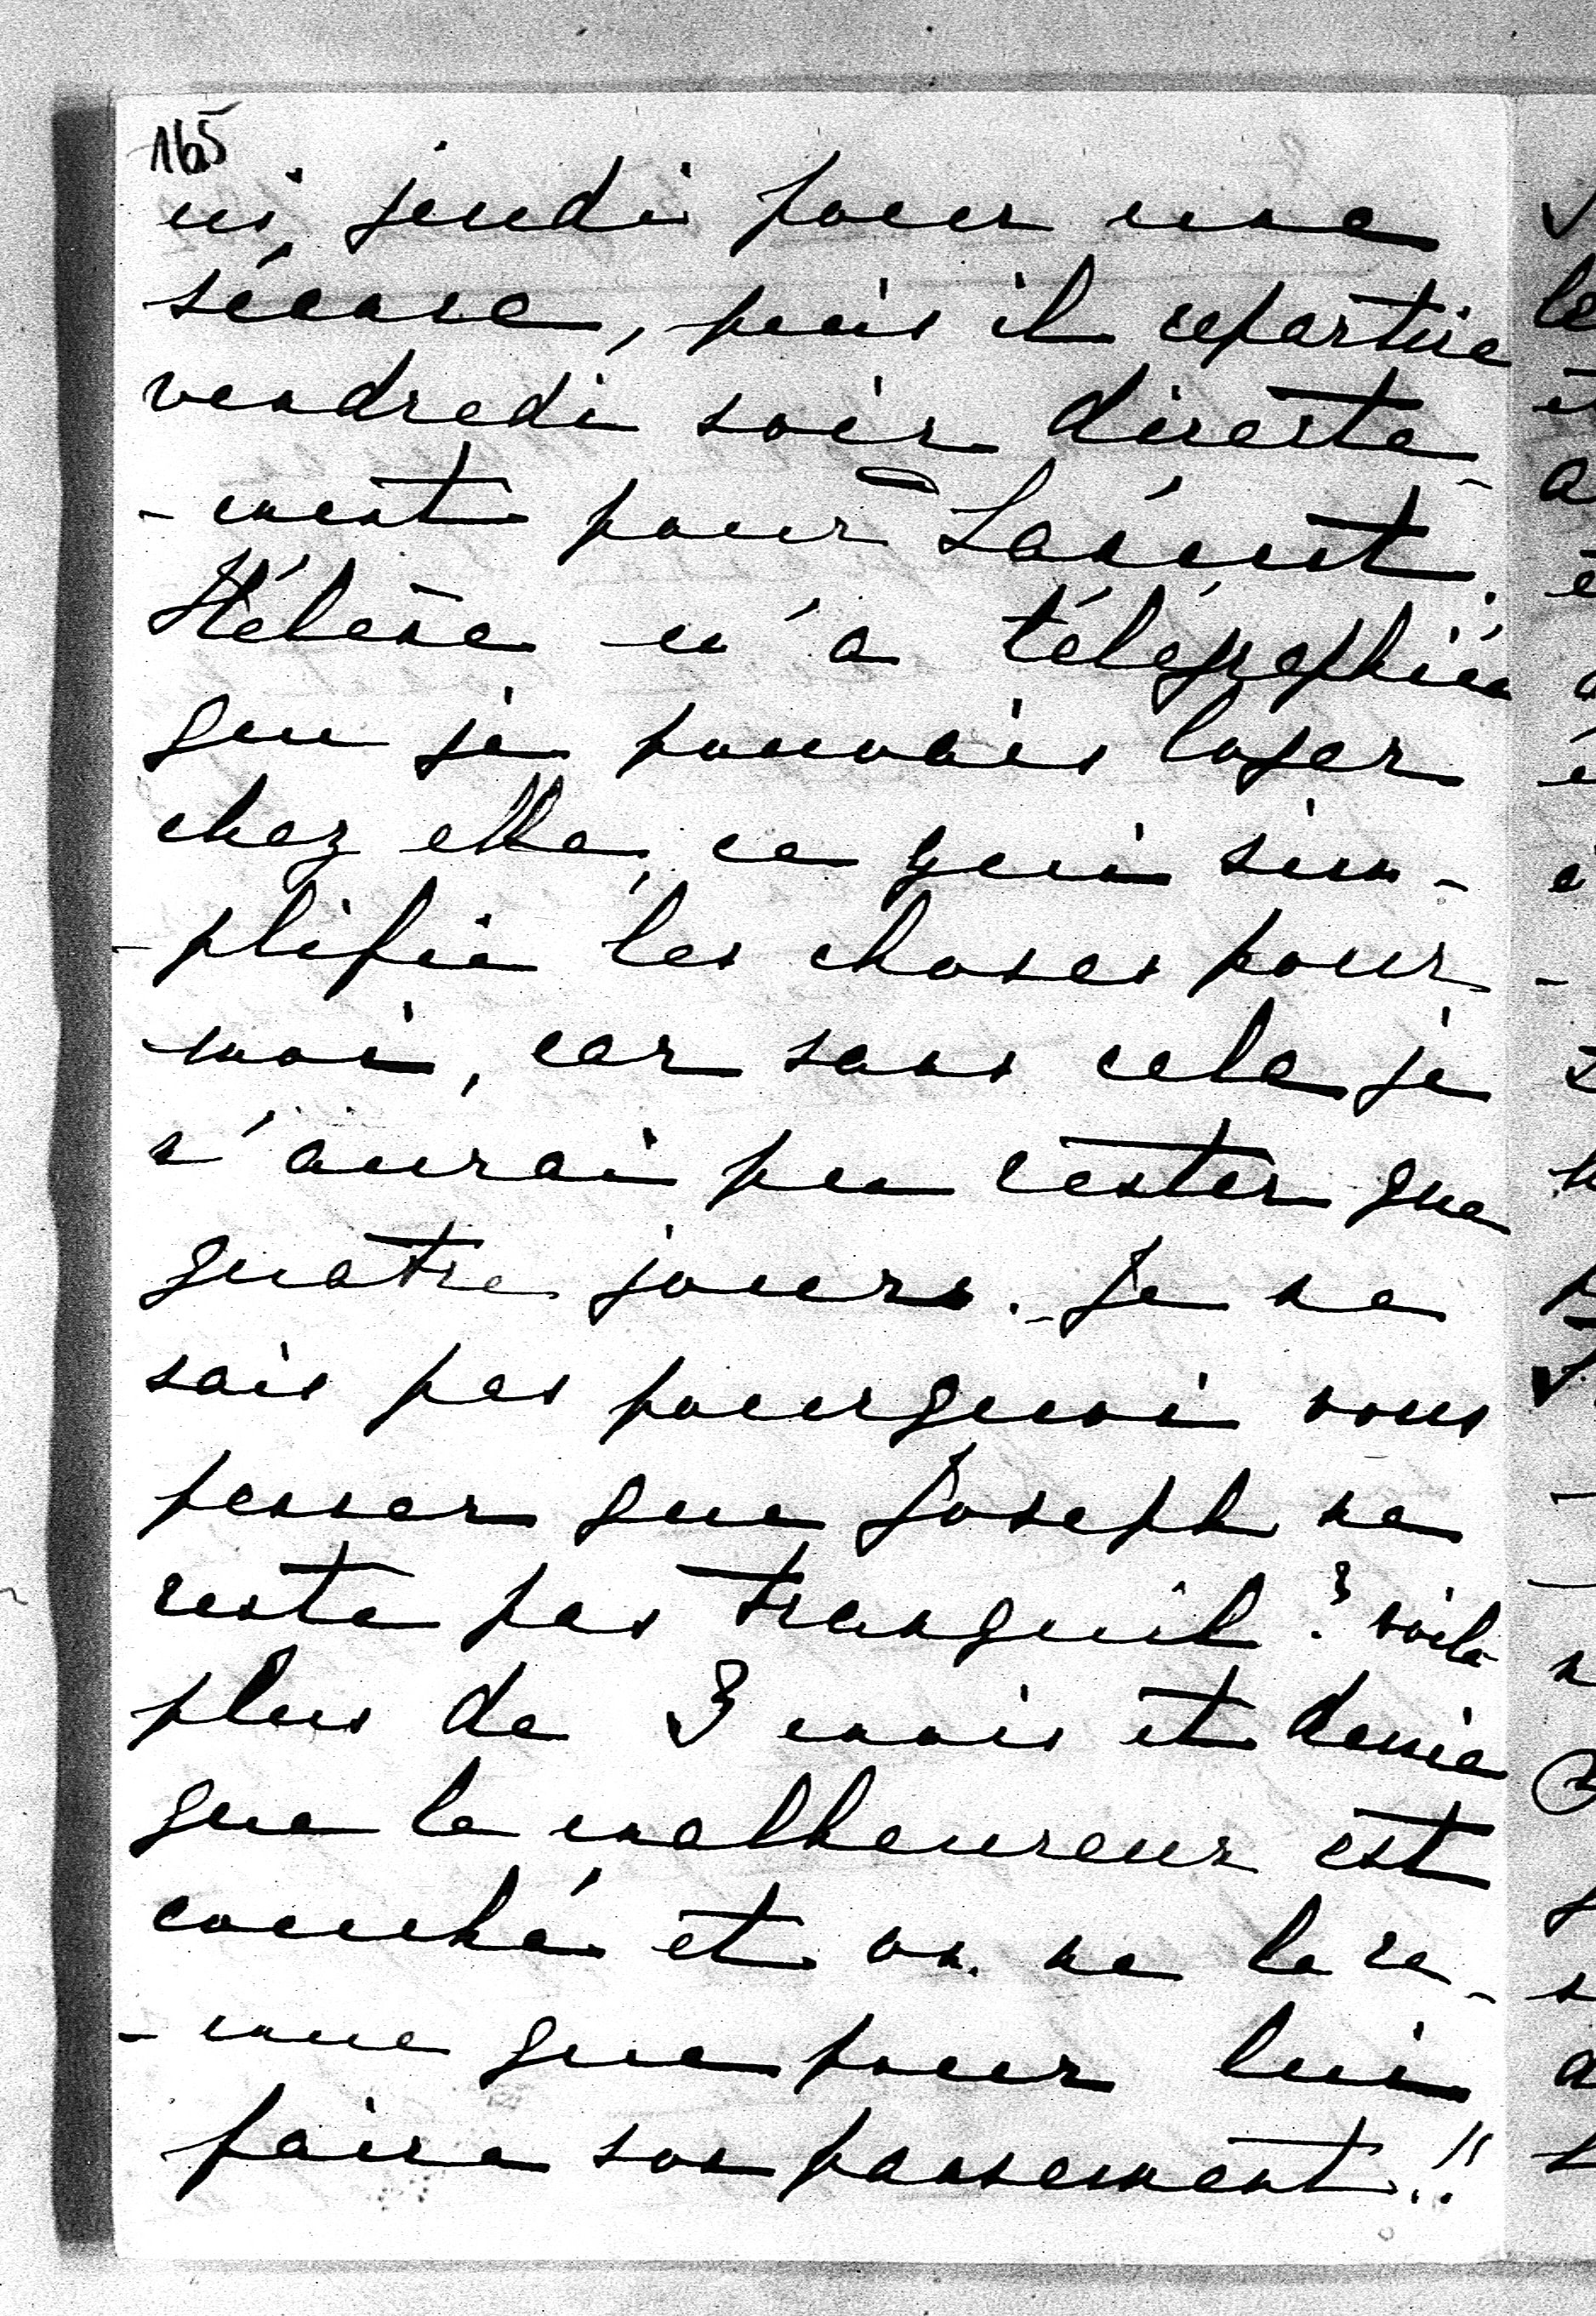 165
ici jeudi pour une
séance, puis il repartira
vendredi soir directe-
-ment pour
Hélène m'a télégraphié
que je pouvais loger
chez elle, ce qui sim-
-plifie les choses pour
moi, car sans cela je
n'aurai pu rester que
quatre jours. - Je ne
sais pas pourquoi vous
penser que Joseph ne
reste pas tranquil ? voilà
plus de 3 mois et demie
que le malheureux est
couché et on ne le re-
-mue que pour lui
faire son pansement !!